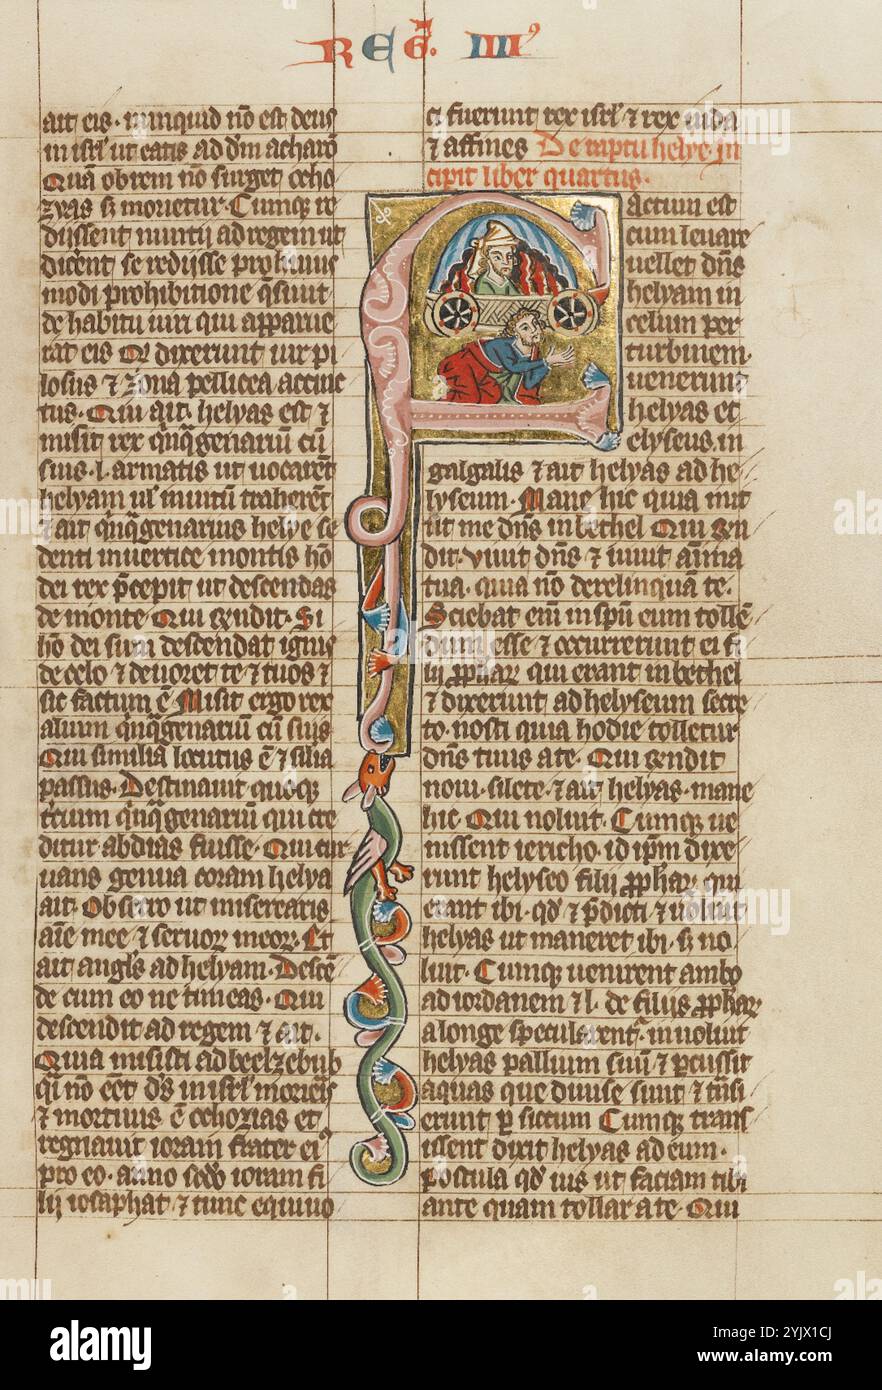 REG̃. IIII⁹
ait eis· nunquid nõ est deus
in isrl̃ ut eatis ad dm̃ acharõ
Quã obrem nõ surget ocho
zyas s; morietur· Cumq; re
dijssent nuntij ad regem ut
dicerent se redijsse prophetie
modi prohibitione q̃siuit
de habitu uiri qui apparue
rat eis Qi dixerunt uir pi
losus ⁊ zona pellicea accinc
tus· Qui ait· helyas est ⁊
misit rex quĩq̃genariũ cũ
suis ·l· armatis ut uocarẽt
helyam ul̃ inuitũ traherẽt
⁊ ait quĩq̃genarius helye se
denti in uertice montis hõ
dei rex p̃cepit ut descendas
de monte Qui r̃ndit· Si
hõ dei sum descendat ignis
de celo ⁊ deuoret te ⁊ tuos ⁊
sic factum ẽ Misit ergo rex
alium quĩq̃genariũ cũ suis
Qui similia locutus ẽ ⁊ silia
passus· Destinauit quoq;
tertium quĩq̃genariũ qui cre
ditur abdias fuisse· Qui cur
uans genua coram helya
ait· Obsecro ut miserearis
aĩe mee ⁊ seruoꝝ meoꝝ· Et
ait angl̃s ad helyam· Descẽ
de cum eo ne timeas· Qui
descendit ad regem ⁊ ait·
Quia misisti ad beelzebub
q̃i nõ eẽt ds̃ in isrl̃ morieris
⁊ mortuus ẽ ochozias et
regnauit ioram frater ei⁹
pro eo· anno sc̃do ioram fi
lij iosaphat ⁊ tunc equiuo
ci fuerunt rex isrl̃ ⁊ rex iuda
⁊ affines De raptu helye· In
cipit liber quartus·
Factum est
cum leuare
uellet dñs
helyam in
celum per
turbinem·
uenerunt
helyas et
elyseus in
galgalis ⁊ ait helyas ad he
lyseum· Mane hic quia mit
tit me dñs in bethel Qui r̃n
dit· viuit dñs ⁊ uiuit anima
tua· quia nõ derelinquã te·
Sciebat eni in spũ eum tollẽ
dum esse ⁊ occurrerunt ei fi
lij ꝓphaꝝ qui erant in bethel
⁊ dixerunt ad helyseum secre
to· nosti quia hodie tolletur
dñs tuus a te· Qui r̃ndit
noui· silete· ⁊ ait helyas· mane
hic· Qui noluit· Cumq; ue
nissent iericho· id ipm̃ dixe
runt helyseo filij ꝓphaꝝ qui
erant ibi· qd̃ ⁊ p̃dicti ⁊ uoluit
helyas ut maneret ibi· s; no
luit· Cumq; uenirent ambo
ad iordanem ⁊ ·l· de filijs ꝓphaꝝ
a longe specularent᷑· inuoluit
helyas pallium suũ ⁊ ꝑcussit
aquas que diuise sunt ⁊ t̃nsi
erunt ꝑ siccum Cumq; trans
issent dixit helyas ad eum·
Postula qd̃ uis ut faciam tibi
ante quam tollar a te· Qui
alamy
alamy
Image ID: 2YJX1CJ
www.alamy.com